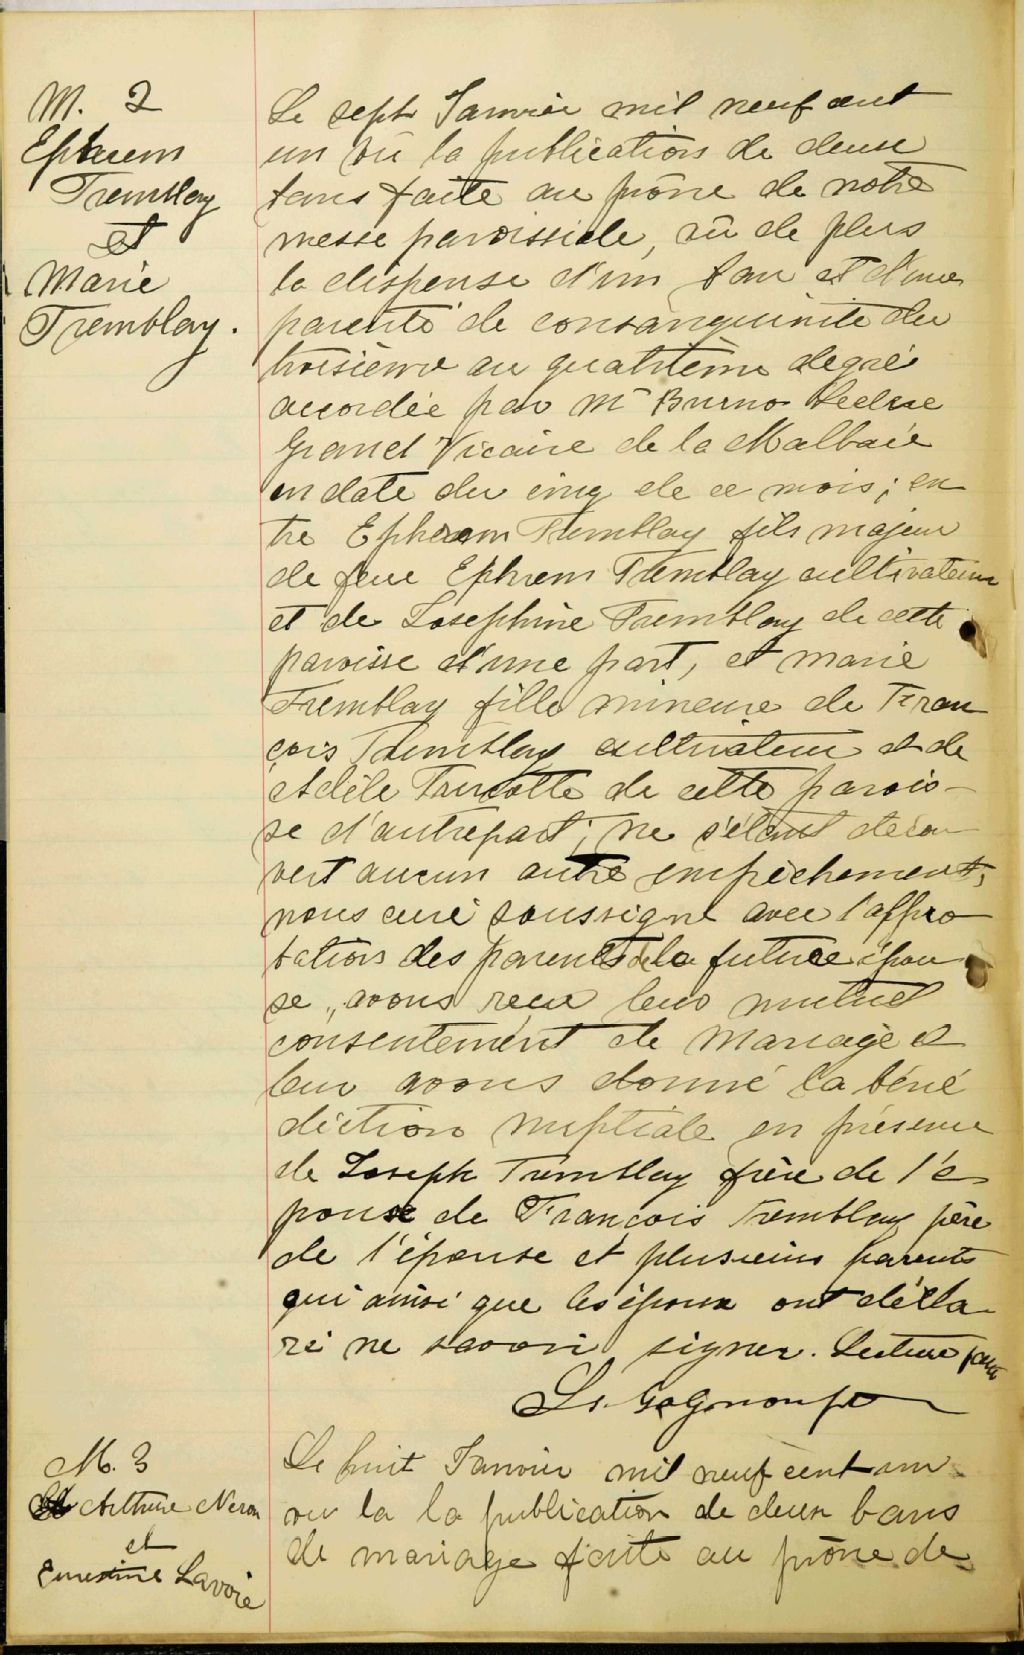 M. 2
Ephrem
Tremblay
et
Marie
Tremblay.
Le sept Janvier mil neuf cent
un vû la publication de deux
bans faite au prône de notre
messe paroissiale, vû de plus
la dispense d'un ban et d'une
parenté de consanguinité du
troisième au quatrième degré
accordée par Mr Bruno Leclerc
Grand Vicaire de la Malbaie
en date du cinq de ce mois; en
tre Ephrem Tremblay fils majeur
de feue Ephrem Tremblay cultivateur
et de Josephine Tremblay de cette
paroisse d'une part, et marie
Tremblay fille mineure de Fran
çois Tremblay cultivateur et de
Adèle Turcotte de cette parois-
se d'autrepart; ne s'étant décou
vert aucun autre empêchement,
nous curé soussigné avec l'appro
bation des parents de la future épou
se, avons reçu leur mutuel
consentement de mariage et
leur avons donné la béné
diction nuptiale en présence
de Joseph Tremblay frère de l'é
poux de François Tremblay père
de l'épouse et plusieurs parents
qui ainsi que les époux ont décla
ré ne savoir signer. Lecture faite
Ls. Gagnon ptre
M. 3
Arthure Neron
et
Ernestine Lavoie
Le huit Janvier mil neuf cent un
vu la la publication de deux bans
de mariage faite au prône de